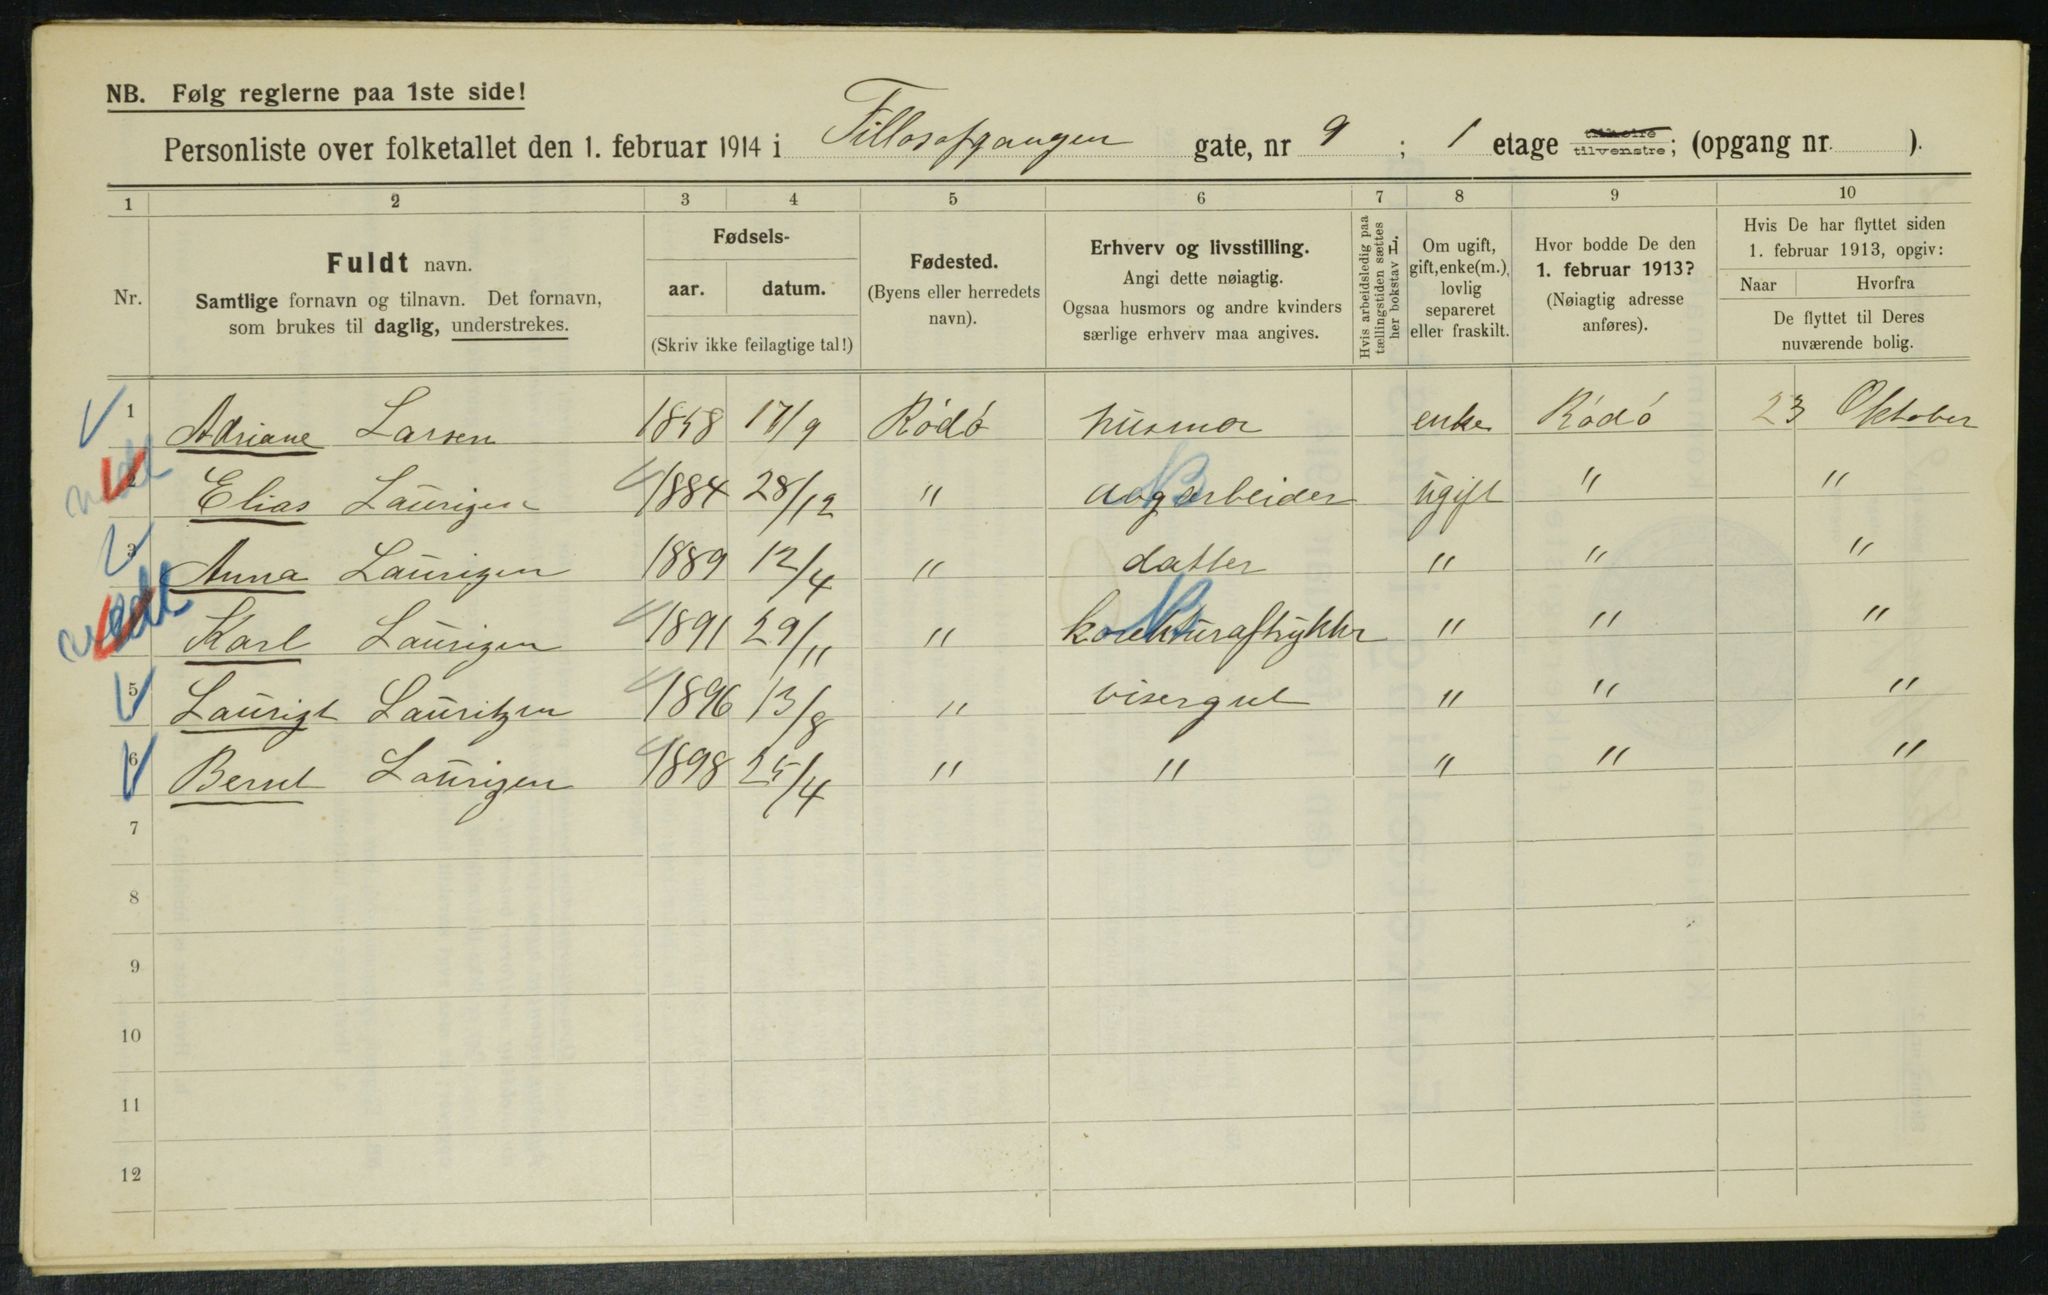 NB. Følg reglerne paa 1ste side!
Personliste over folketallet den 1. februar 1914 i Fillosofgangen gate, nr 9 ; 1 etage tilhøire tilvenstre; (opgang nr. ).
1 2 3 4 5 6 7 8 9 10
Nr.
Fuldt navn.
Samtlige fornavn og tilnavn. Det fornavn,
som brukes til daglig, understrekes.
Fødsels-
aar. datum.
(Skriv ikke feilagtige tal!)
Fødested.
(Byens eller herredets
navn).
Erhverv og livsstilling.
Angi dette nøiagtig.
Ogsaa husmors og andre kvinders
særlige erhverv maa angives.
Hvis arbeidsledig paa
tællingstiden sættes
her bokstav L.
Om ugift,
gift, enke(m.),
lovlig
separeret
eller fraskilt.
Hvor bodde De den
1. februar 1913?
(Nøiagtig adresse
anføres).
Hvis De har flyttet siden
1. februar 1913, opgiv:
Naar Hvorfra
De flyttet til Deres
nuværende bolig.
1 Adriane Larsen 1858 17/9 Rödö husmor enke Rödö 23 Oktober
2 Elias Laurizen 1884 28/12 " dagarbeider ugift " "
3 Anna Laurizen 1889 12/4 " datter " " "
Karl Laurizen 1891 29/11 " korekturaftrykker " " "
5 Laurizt Lauritzen 1896 13/8 " visergut " " "
6 Bernt Laurizen 1898 25/4 " " " " "
7
8
9
10
11
12